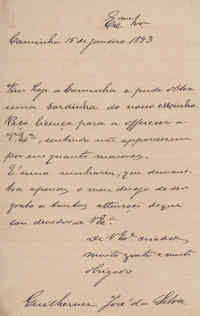 Exmo Snr
Caminha 15 de janeiro 1893
Vim hoje a Caminha e pude obter
uma sardinha do nosso
Peço licença para a offerecer a
V. Exa, sentindo não apparecerem
por em quanto maiores.
É uma ninharia, que demonstra
apenas o meu desejo de ser
grato a tantas attenções de que
sou devedor a V. Exa
De V. Exa criado
muito grato e muito
obrigado
Guilherme José da Silva